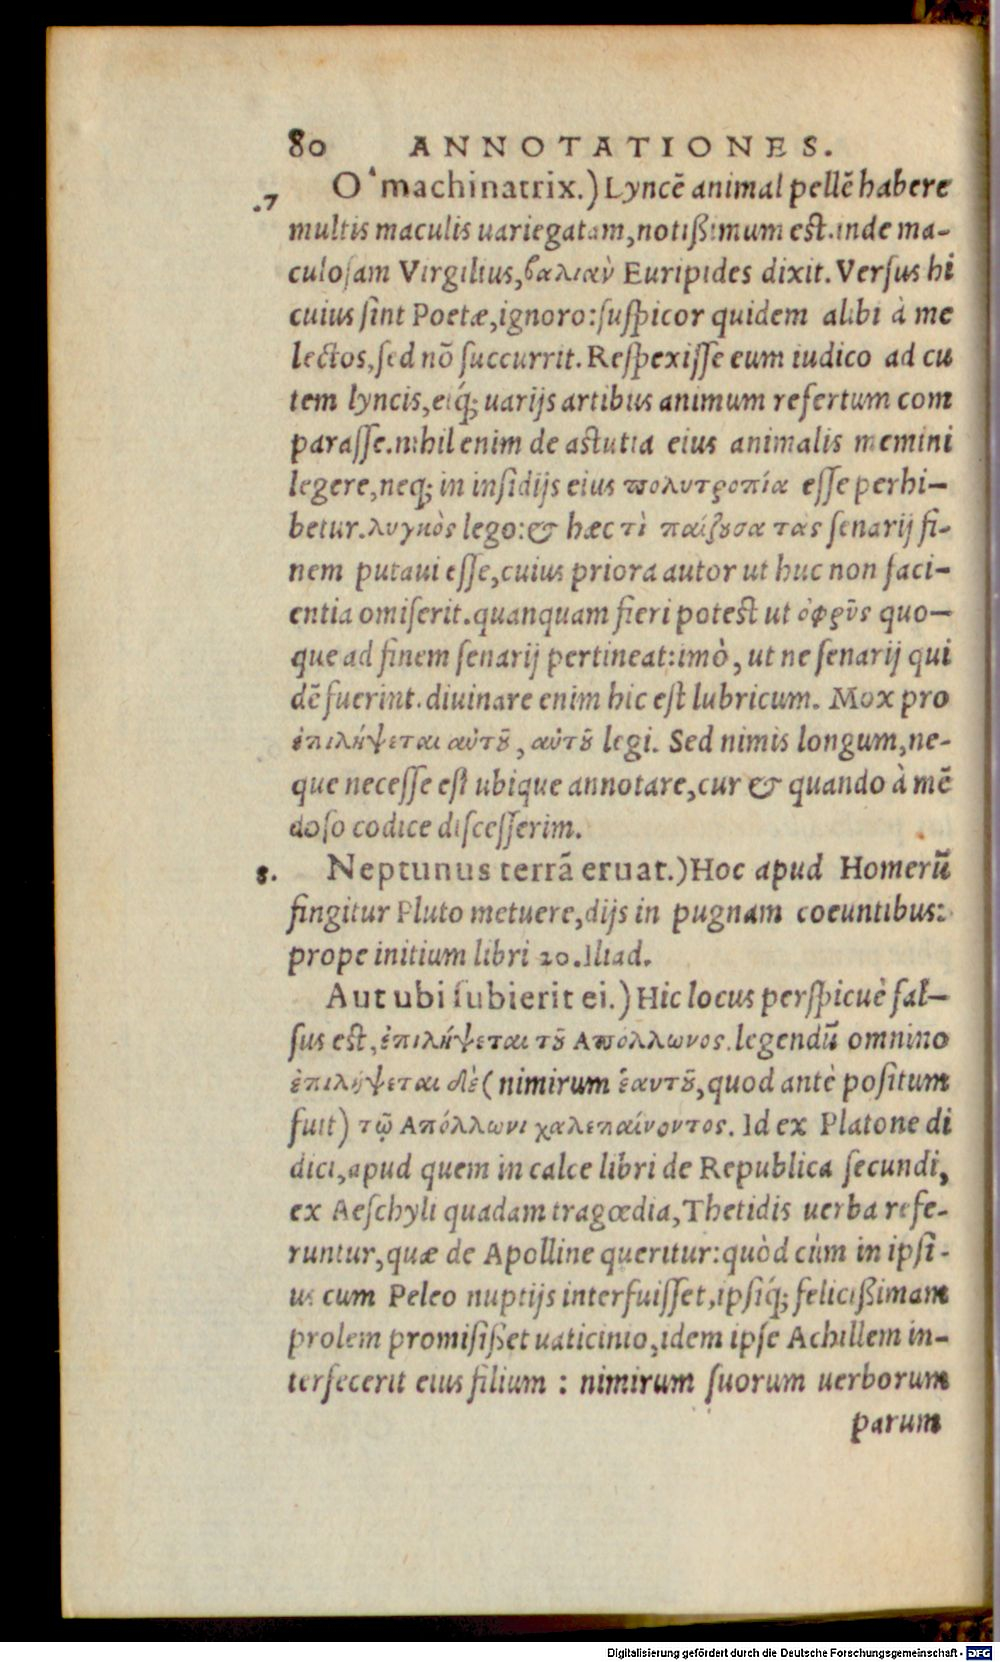 80 ANNOTATIONES.
.7 O machinatrix.) Lyncē animal pellē habere
multis maculis uariegatam, notißimum est. inde ma-
culosam Virgilius, βαλιαν̀ Euripides dixit. Versus hi
cuius sint Poetæ, ignoro: suspicor quidem alibi à me
lectos, sed nō succurrit. Respexisse eum iudico ad cu
tem lyncis, eiq́; uarijs artibus animum refertum com
parasse. nihil enim de astutia eius animalis memini
legere, neq; in insidijs eius πολυτροπία esse perhi-
betur. λυγκὸς lego: & hæc τὶ παίζουσα τας senarij fi-
nem putaui esse, cuius priora autor ut huc non faci-
entia omiserit. quanquam fieri potest ut ὀφρῦς quo-
que ad finem senarij pertineat: imò, ut ne senarij qui
dē fuerint. diuinare enim hic est lubricum. Mox pro
ἐπιλήψεται αὐτοῦ, αὑτοῦ legi. Sed nimis longum, ne-
que necesse est ubique annotare, cur & quando à mē
doso codice discesserim.
8. Neptunus terrā eruat.) Hoc apud Homerū
fingitur Pluto metuere, dijs in pugnam coeuntibus:
prope initium libri 20. Iliad.
Aut ubi subierit ei.) Hic locus perspicuè fal-
sus est, ἐπιλήψεται τοῦ Απόλλωνος. legendū omnino
ἐπιλήψεται δὲ (nimirum ἑαυτοῦ, quod antè positum
fuit) τῷ Απόλλωνι χαλεπαίνοντος. Id ex Platone di
dici, apud quem in calce libri de Republica secundi,
ex Aeschyli quadam tragœdia, Thetidis uerba refe-
runtur, quæ de Apolline queritur: quòd cùm in ipsi-
us cum Peleo nuptijs interfuisset, ipsiq́; felicißimam
prolem promisißet uaticinio, idem ipse Achillem in-
terfecerit eius filium : nimirum suorum uerborum
parum
Digitalisierung gefördert durch die Deutsche Forschungsgemeinschaft - DFG